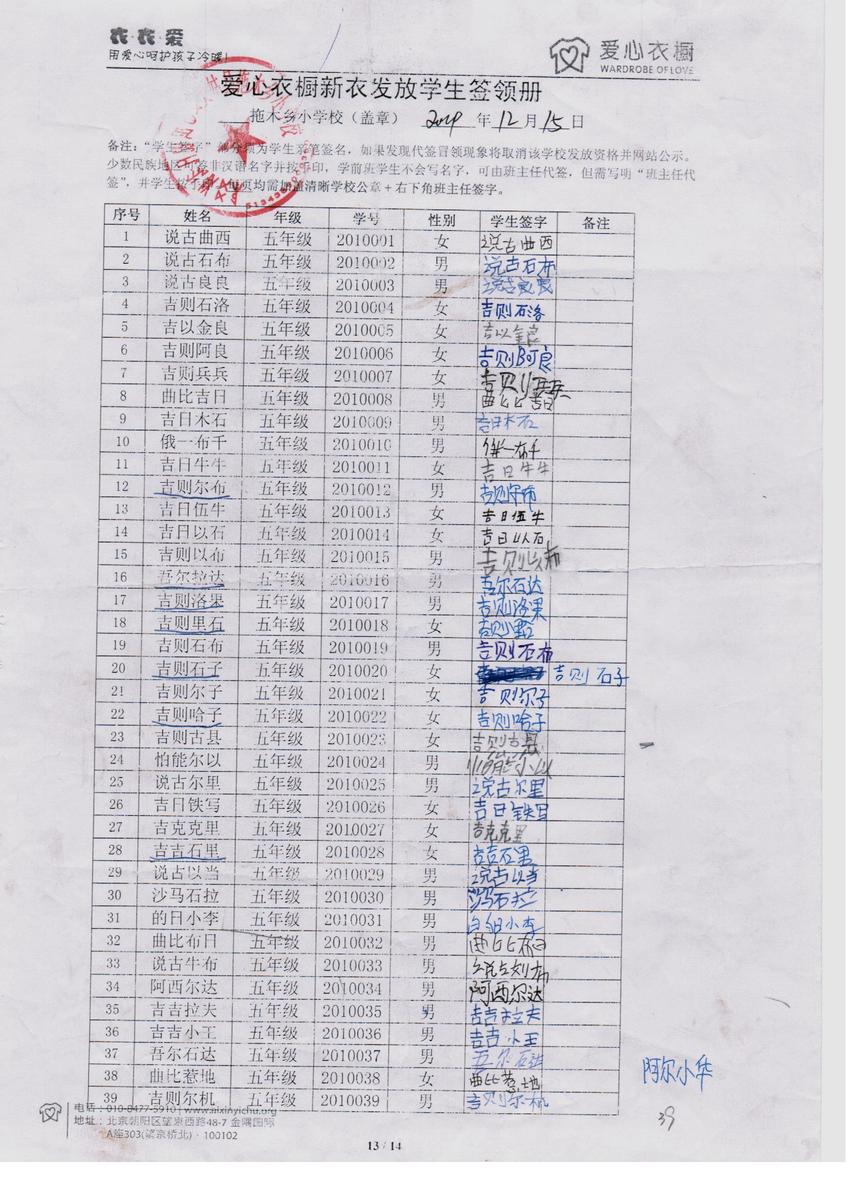 衣·衣·爱
用爱心呵护孩子冷暖!
爱心衣橱
WARDROBE OF LOVE
爱心衣橱新衣发放学生签领册
拖木乡小学校（盖章） 2014 年 12 月 15 日
备注：“学生签字”部分须为学生亲笔签名，如果发现代签冒领现象将取消该学校发放资格并网站公示。
少数民族地区可签非汉语名字并按手印，学前班学生不会写名字，可由班主任代签，但需写明“班主任代
签”，并学生按手印。但页均需加盖清晰学校公章+右下角班主任签字。
序号 姓名 年级 学号 性别 学生签字 备注
1 说古曲西 五年级 2010001 女 说古曲西
2 说古石布 五年级 2010002 男 说古石布
3 说古良良 五年级 2010003 男 说古良良
4 吉则石洛 五年级 2010004 女 吉则石洛
5 吉以金良 五年级 2010005 女 吉以金良
6 吉则阿良 五年级 2010006 女 吉则阿良
7 吉则兵兵 五年级 2010007 女 吉则兵兵
8 曲比吉日 五年级 2010008 男 曲比吉日
9 吉日木石 五年级 2010009 男 吉日木石
10 俄一布千 五年级 2010010 男 俄一布千
11 吉日牛牛 五年级 2010011 女 吉日牛牛
12 吉则尔布 五年级 2010012 男 吉则尔布
13 吉日伍牛 五年级 2010013 女 吉日伍牛
14 吉日以石 五年级 2010014 女 吉日以石
15 吉则以布 五年级 2010015 男 吉则以布
16 吾尔拉达 五年级 2010016 男 吾尔石达
17 吉则洛果 五年级 2010017 男 吉则洛果
18 吉则里石 五年级 2010018 女 吉则里石
19 吉则石布 五年级 2010019 男 吉则石布
20 吉则石子 五年级 2010020 女 吉则石子
21 吉则尔子 五年级 2010021 女 吉则尔子
22 吉则哈子 五年级 2010022 女 吉则哈子
23 吉则古县 五年级 2010023 女 吉则古县
24 怕能尔以 五年级 2010024 男 怕能尔以
25 说古尔里 五年级 2010025 男 说古尔里
26 吉日铁写 五年级 2010026 女 吉日铁写
27 吉克克里 五年级 2010027 女 吉克克里
28 吉吉石里 五年级 2010028 女 吉吉石里
29 说古以当 五年级 2010029 男 说古以当
30 沙马石拉 五年级 2010030 男 沙马石拉
31 的日小李 五年级 2010031 男 的日小李
32 曲比布日 五年级 2010032 男 曲比布日
33 说古牛布 五年级 2010033 男
34 阿西尔达 五年级 2010034 男 阿西尔达
35 吉吉拉夫 五年级 2010035 男 吉吉拉夫
36 吉吉小王 五年级 2010036 男 吉吉小王
37 吾尔石达 五年级 2010037 男 吾尔石达
38 曲比惹地 五年级 2010038 女 曲比惹地
39 吉则尔机 五年级 2010039 男 吉则尔机
阿尔小华
39
电话：010-8477-5910 | www.aixinyichu.org
地址：北京朝阳区望京西路48-7 金隅国际
A座303(望京桥北)·100102
13 / 14